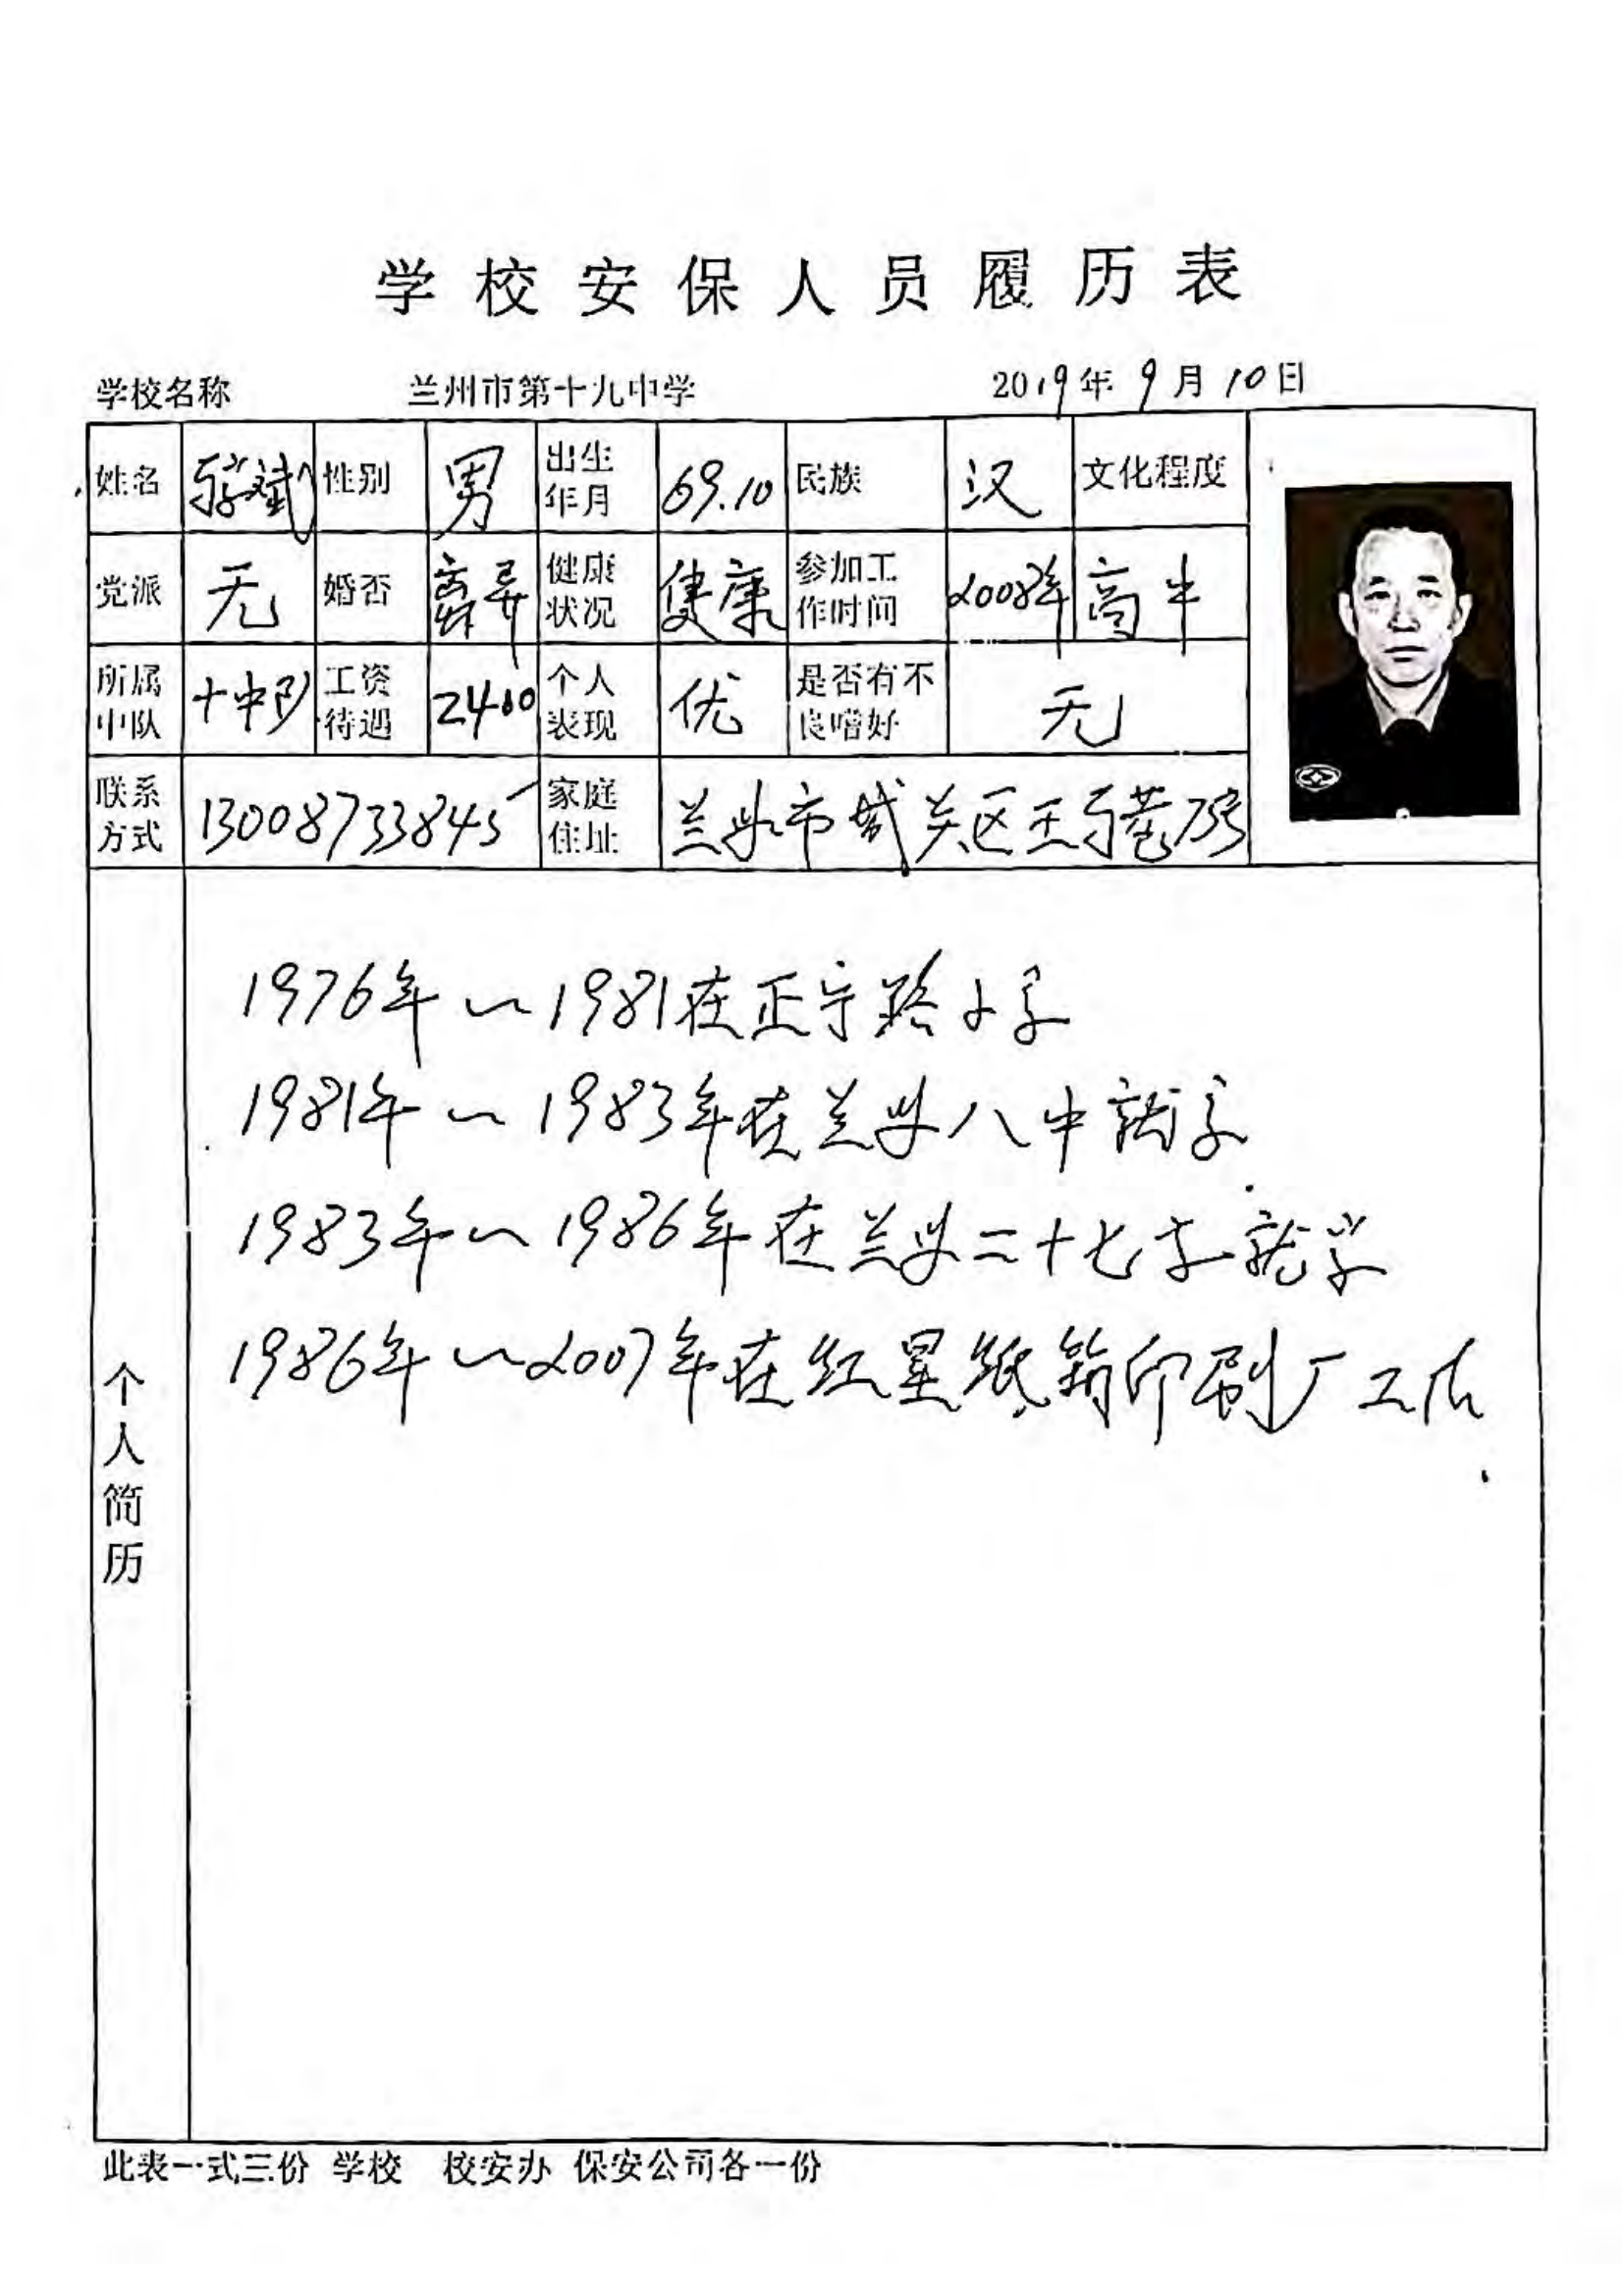 学校安保人员履历表
学校名称 兰州市第十九中学 2019年9月10日
姓名 斌 性别 男 出生年月 69.10 民族 汉 文化程度
党派 无 婚否 离异 健康状况 健康 参加工作时间 2008年 高中
所属中队 十中队 工资待遇 2400 个人表现 优 是否有不良嗜好 无
联系方式 13008733845 家庭住址 兰州市城关区王马巷73号
个人简历
1976年~1981在正宁路小学
1981年~1983年在兰州八中就学
1983年~1986年在兰州二十七中就学
1986年~2007年在红星纸箱印刷厂工作
此表一式三份 学校 校安办 保安公司各一份